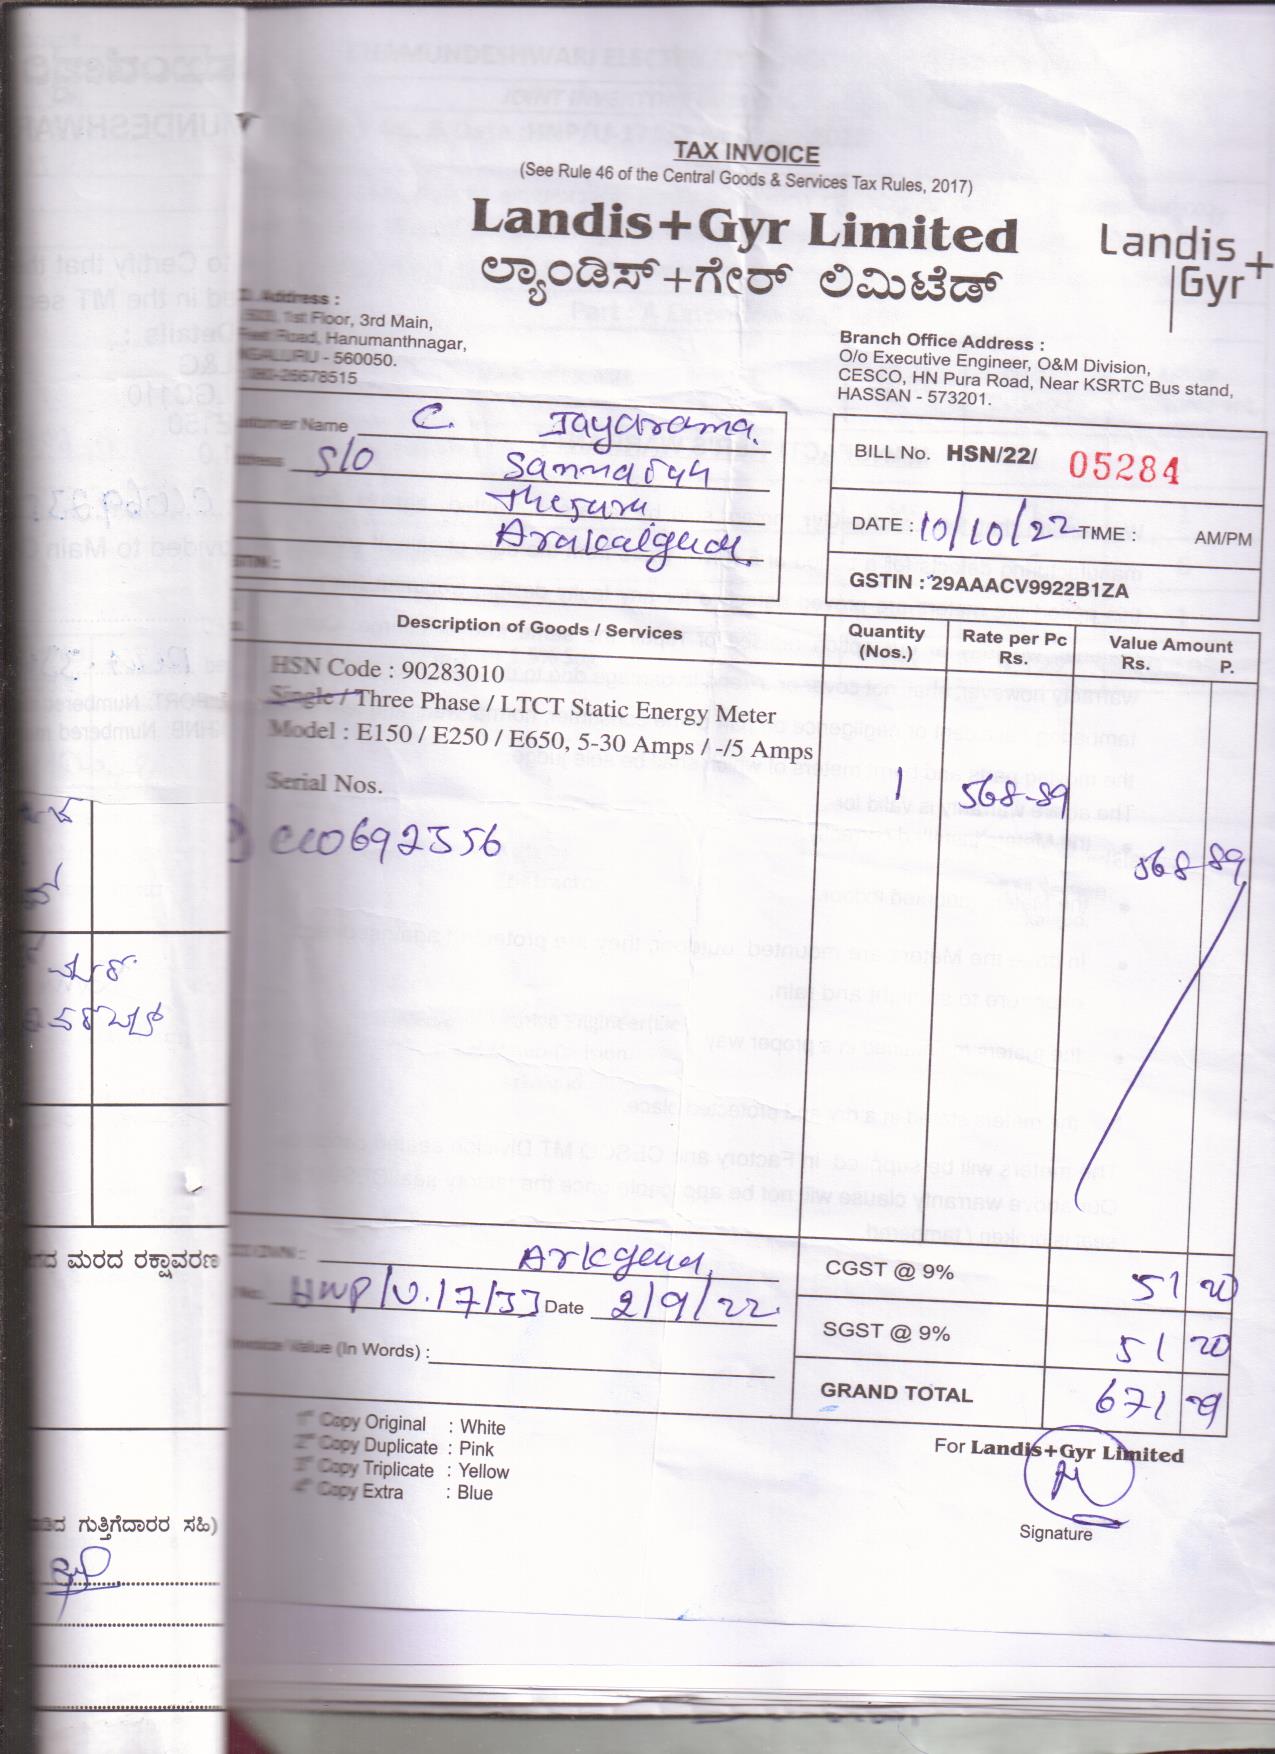 TAX INVOICE
(See Rule 46 of the Central Goods & Services Tax Rules, 2017)
Landis+Gyr Limited
ಲ್ಯಾಂಡಿಸ್+ಗೇರ್ ಲಿಮಿಟೆಡ್
Landis+
Gyr
Address :
1st Floor, 3rd Main,
Road, Hanumanthnagar,
- 560050.
-26678515
Branch Office Address :
O/o Executive Engineer, O&M Division,
CESCO, HN Pura Road, Near KSRTC Bus stand,
HASSAN - 573201.
Name C. Jayarama.
S/O Sannaiah
Arakalgud.
BILL No. HSN/22/ 05284
DATE : 10/10/22 TIME : AM/PM
GSTIN : 29AAACV9922B1ZA
Description of Goods / Services
Quantity (Nos.)
Rate per Pc Rs.
Value Amount Rs. P.
HSN Code : 90283010
Single / Three Phase / LTCT Static Energy Meter
Model : E150 / E250 / E650, 5-30 Amps / -/5 Amps
Serial Nos.
1 568-89
568-89
CC0692356
Arkgud,
HNP/U.17/33 Date 2/9/22.
Value (In Words) :
CGST @ 9% 51 20
SGST @ 9% 51 20
GRAND TOTAL 671 29
1st Copy Original : White
2nd Copy Duplicate : Pink
3rd Copy Triplicate : Yellow
4th Copy Extra : Blue
For Landis+Gyr Limited
Signature
ಮರದ ರಕ್ಷಾವರಣ
ಗುತ್ತಿಗೆದಾರರ ಸಹಿ)